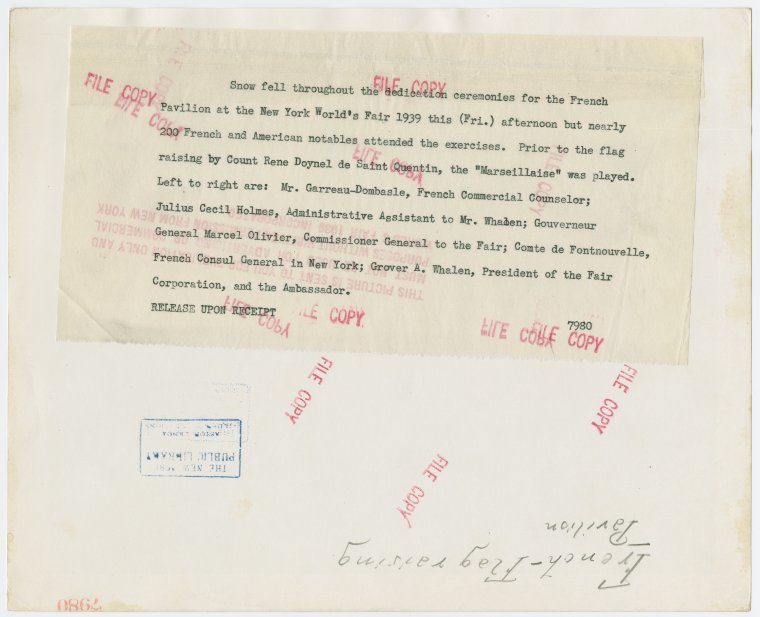 Snow fell throughout the dedication ceremonies for the French
Pavilion at the New York World's Fair 1939 this (Fri.) afternoon but nearly
200 French and American notables attended the exercises. Prior to the flag
raising by Count Rene Doynel de Saint Quentin, the "Marseillaise" was played.
Left to right are: Mr. Garreau-Dombasle, French Commercial Counselor;
Julius Cecil Holmes, Administrative Assistant to Mr. Whalen; Gouverneur
General Marcel Olivier, Commissioner General to the Fair; Comte de Fontnouvelle,
French Consul General in New York; Grover A. Whalen, President of the Fair
Corporation, and the Ambassador.
RELEASE UPON RECEIPT
7980
FILE COPY
FILE COPY
FILE COPY
FILE COPY
FILE COPY
FILE COPY
FILE COPY
FILE COPY
FILE COPY
FILE COPY
FILE COPY
FILE COPY
THIS PICTURE IS SENT TO YOU FOR
ONLY AND
MUST NOT
ADVERTISING OR COMMERCIAL
PURPOSES WITHOUT
PERMISSION FROM NEW YORK
FAIR 1939 INCORPORATED
THE NEW YORK
PUBLIC LIBRARY
ASTOR LENOX
French - Flag raising
Pavilion
7980